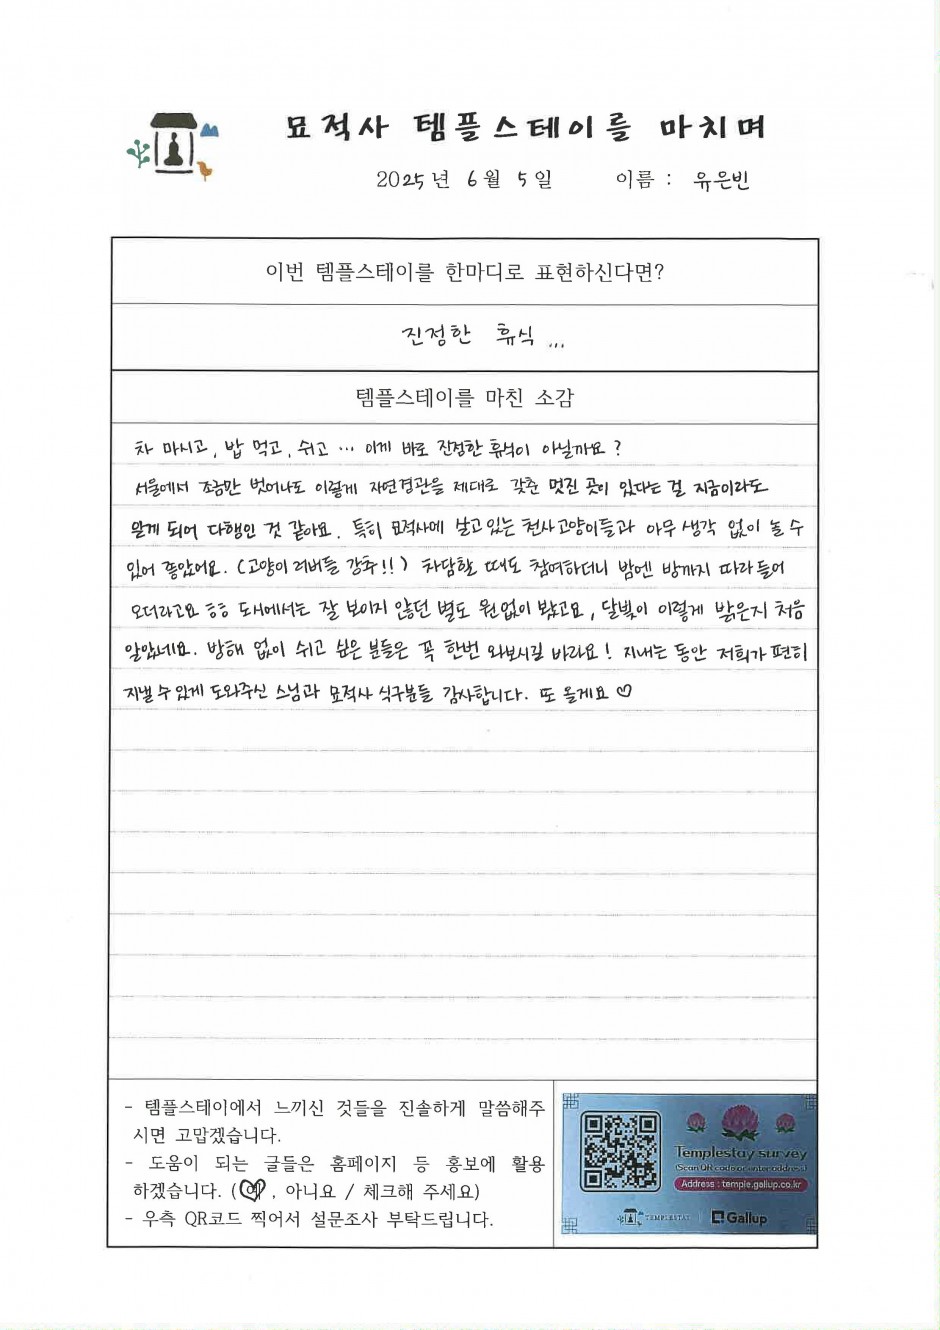 묘적사 템플스테이를 마치며
2025년 6월 5일 이름 : 유은빈
이번 템플스테이를 한마디로 표현하신다면?
진정한 휴식 ...
템플스테이를 마친 소감
차 마시고, 밥 먹고, 쉬고 … 이게 바로 진정한 휴식이 아닐까요?
서울에서 조금만 벗어나도 이렇게 자연경관을 제대로 갖춘 멋진 곳이 있다는 걸 지금이라도
알게 되어 다행인 것 같아요. 특히 묘적사에 살고있는 천사고양이들과 아무 생각 없이 놀 수
있어 좋았어요. (고양이 러버들 강추!!) 차담할 때도 참여하더니 밤엔 방까지 따라들어
오더라고요 ㅎㅎ 도시에서는 잘 보이지 않던 별도 원없이 봤고요, 달빛이 이렇게 밝은지 처음
알았네요. 방해 없이 쉬고 싶은 분들은 꼭 한번 와보시길 바라요! 지내는 동안 저희가 편히
지낼 수 있게 도와주신 스님과 묘적사 식구분들 감사합니다. 또 올게요 ♡
- 템플스테이에서 느끼신 것들을 진솔하게 말씀해주
시면 고맙겠습니다.
- 도움이 되는 글들은 홈페이지 등 홍보에 활용
하겠습니다. (예, 아니요 / 체크해 주세요)
- 우측 QR코드 찍어서 설문조사 부탁드립니다.
Templestay survey
(Scan QR code or enter address)
Address : temple.gallup.co.kr
TEMPLESTAY Gallup